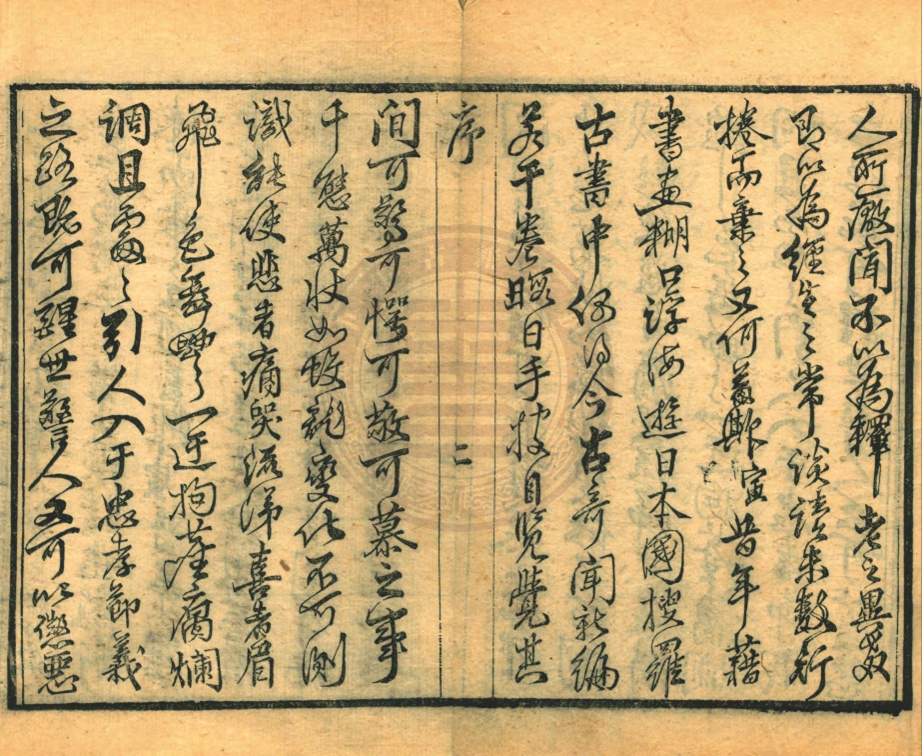 人所厭聞不以為釋老之異教
即以為經生之常談讀未數行
捲而棄之又何益歟寅昔年藉
書畫糊口浮海遊日本國搜羅
古書中偶得今古奇聞新編
若干卷暇日手披目覽覺其
序 二
間可驚可愕可敬可慕之事
千態萬狀如蛟龍變化不可測
識能使悲者痛哭流涕喜者眉
飛色舞無一迂拘腐爛
調且處々引人入于忠孝節義
之路既可醒世警人又可以懲惡